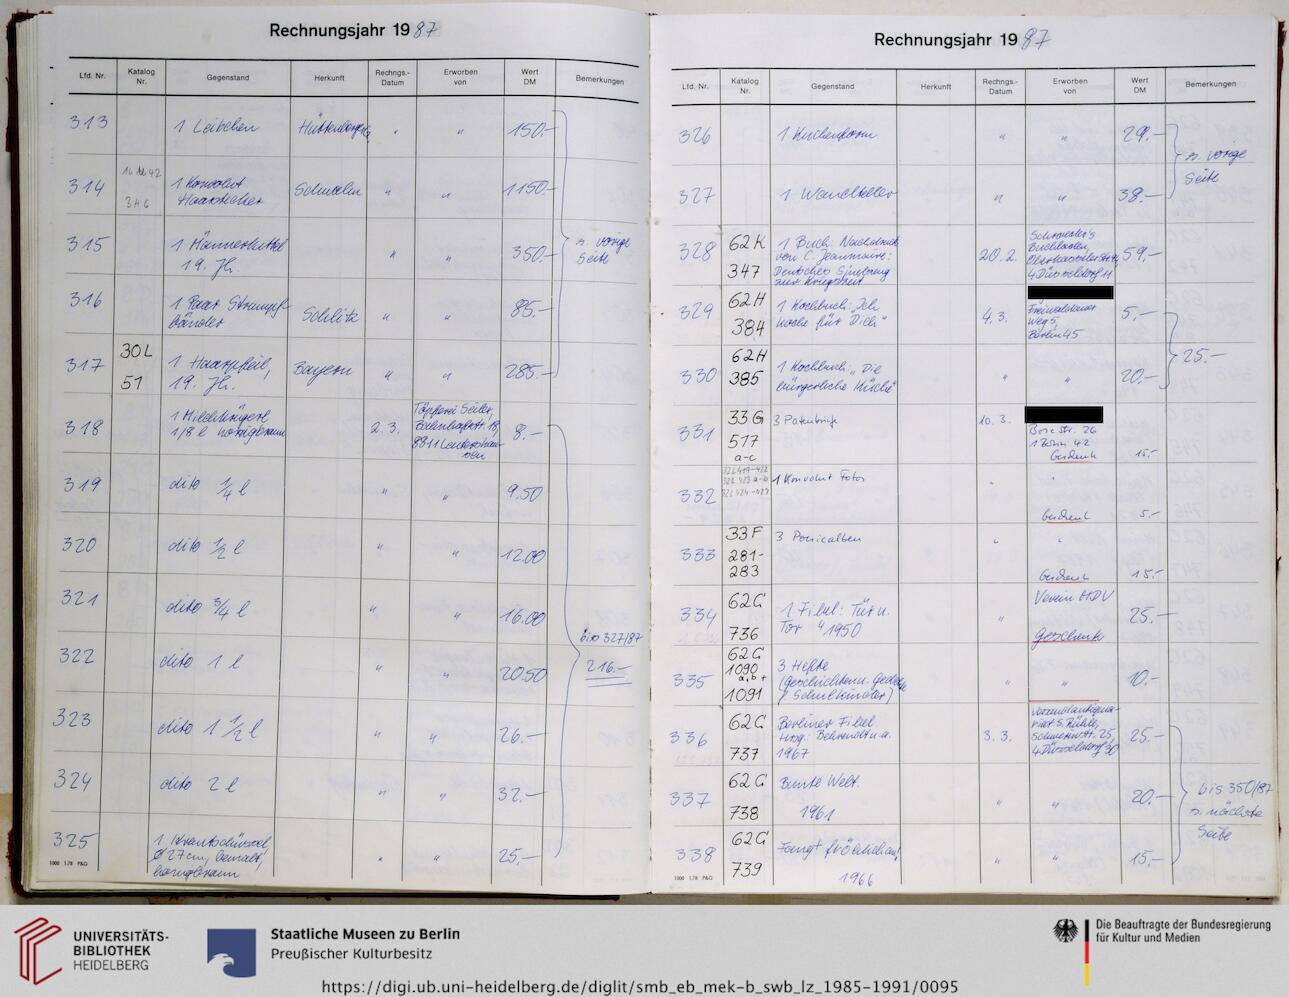 Rechnungsjahr 1987
Lfd. Nr. Katalog Nr. Gegenstand Herkunft Rechngs.-Datum Erworben von Wert DM Bemerkungen
313 1 Leibchen " " 150.-
314 1 Konvolut Haarstecher " " 1150.-
346
315 1 19. Jh. " " 350.- s. vorige Seite
316 1 Paar Strumpfbänder Schlitz " " 85.-
317 30L 51 1 Haarpfeil, 19. Jh. Bayern " " 285.-
318 1 Milchkrügerl 1/8 l honigbraun 2.3. Töpferei Seiler, 8811 8.-
319 dito 1/4 l " " 9.50
320 dito 1/2 l " " 12.00
321 dito 3/4 l " " 16.00
bis 327/87
322 dito 1 l " " 20.50 216.-
323 dito 1 1/2 l " " 26.-
324 dito 2 l " " 32.-
325 1 Krautschüssel, Ø 27cm, bemalt, honigbraun " " 25.-
1000 1.78 P&G
Rechnungsjahr 1987
Lfd. Nr. Katalog Nr. Gegenstand Herkunft Rechngs.-Datum Erworben von Wert DM Bemerkungen
326 1 Kuchenform " " 29.-
s. vorige Seite
327 1 Wandteller " " 38.-
328 62K 347 1 Buch: Nachdruck von C. Jeanmaire: Deutsches Spielzeug zur Kriegszeit 20.2. Buchladen, 4 Düsseldorf 11 59,-
329 62H 384 1 Kochbuch: "Ich koche für Dich" 4.3. Weg 5, Berlin 45 5,-
25.-
330 62H 385 1 Kochbuch: "Die bürgerliche Küche" " " 20.-
331 33G 517 a-c 3 Patenbriefe 10.3. Str. 26 1 Berlin 42 Geschenk 15,-
332 1 Konvolut Fotos " " Geschenk 5,-
333 33F 281-283 3 Poesiealben " " Geschenk 15,-
334 62G 736 1 Fibel: Tür u. Tor 1950 " Verein MDV Geschenk 25.-
335 62G 1090 a,b + 1091 3 Hefte (Geschichten u. Gedichte f. Schulkinder) " " 10.-
336 62G 737 Berliner Fibel. Hrsg: Behrendt u.a. 1967 3.3. Versandantiquariat S. 4 Düsseldorf 30 25.-
337 62G 738 Bunte Welt. 1961 " " 20.-
bis 350/87 s. nächste Seite
338 62G 739 Fangt fröhlich an! 1966 " " 15,-
1000 1.78 P&G
UNIVERSITÄTS-
BIBLIOTHEK
HEIDELBERG
Staatliche Museen zu Berlin
Preußischer Kulturbesitz
Die Beauftragte der Bundesregierung
für Kultur und Medien
https://digi.ub.uni-heidelberg.de/diglit/smb_eb_mek-b_swb_lz_1985-1991/0095